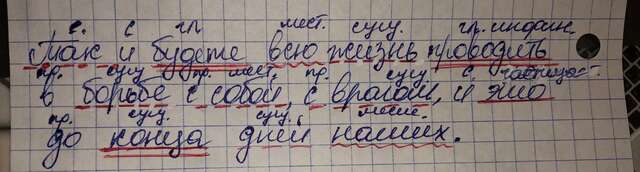 с. с гл. мест. сущ. гл. инфин.
Так и будете всю жизнь проводить
пр. сущ. пр. мест. пр. сущ. с. частица
в борьбе с собой, с врагом, и это
пр. сущ. сущ. мест.
до конца дней наших.